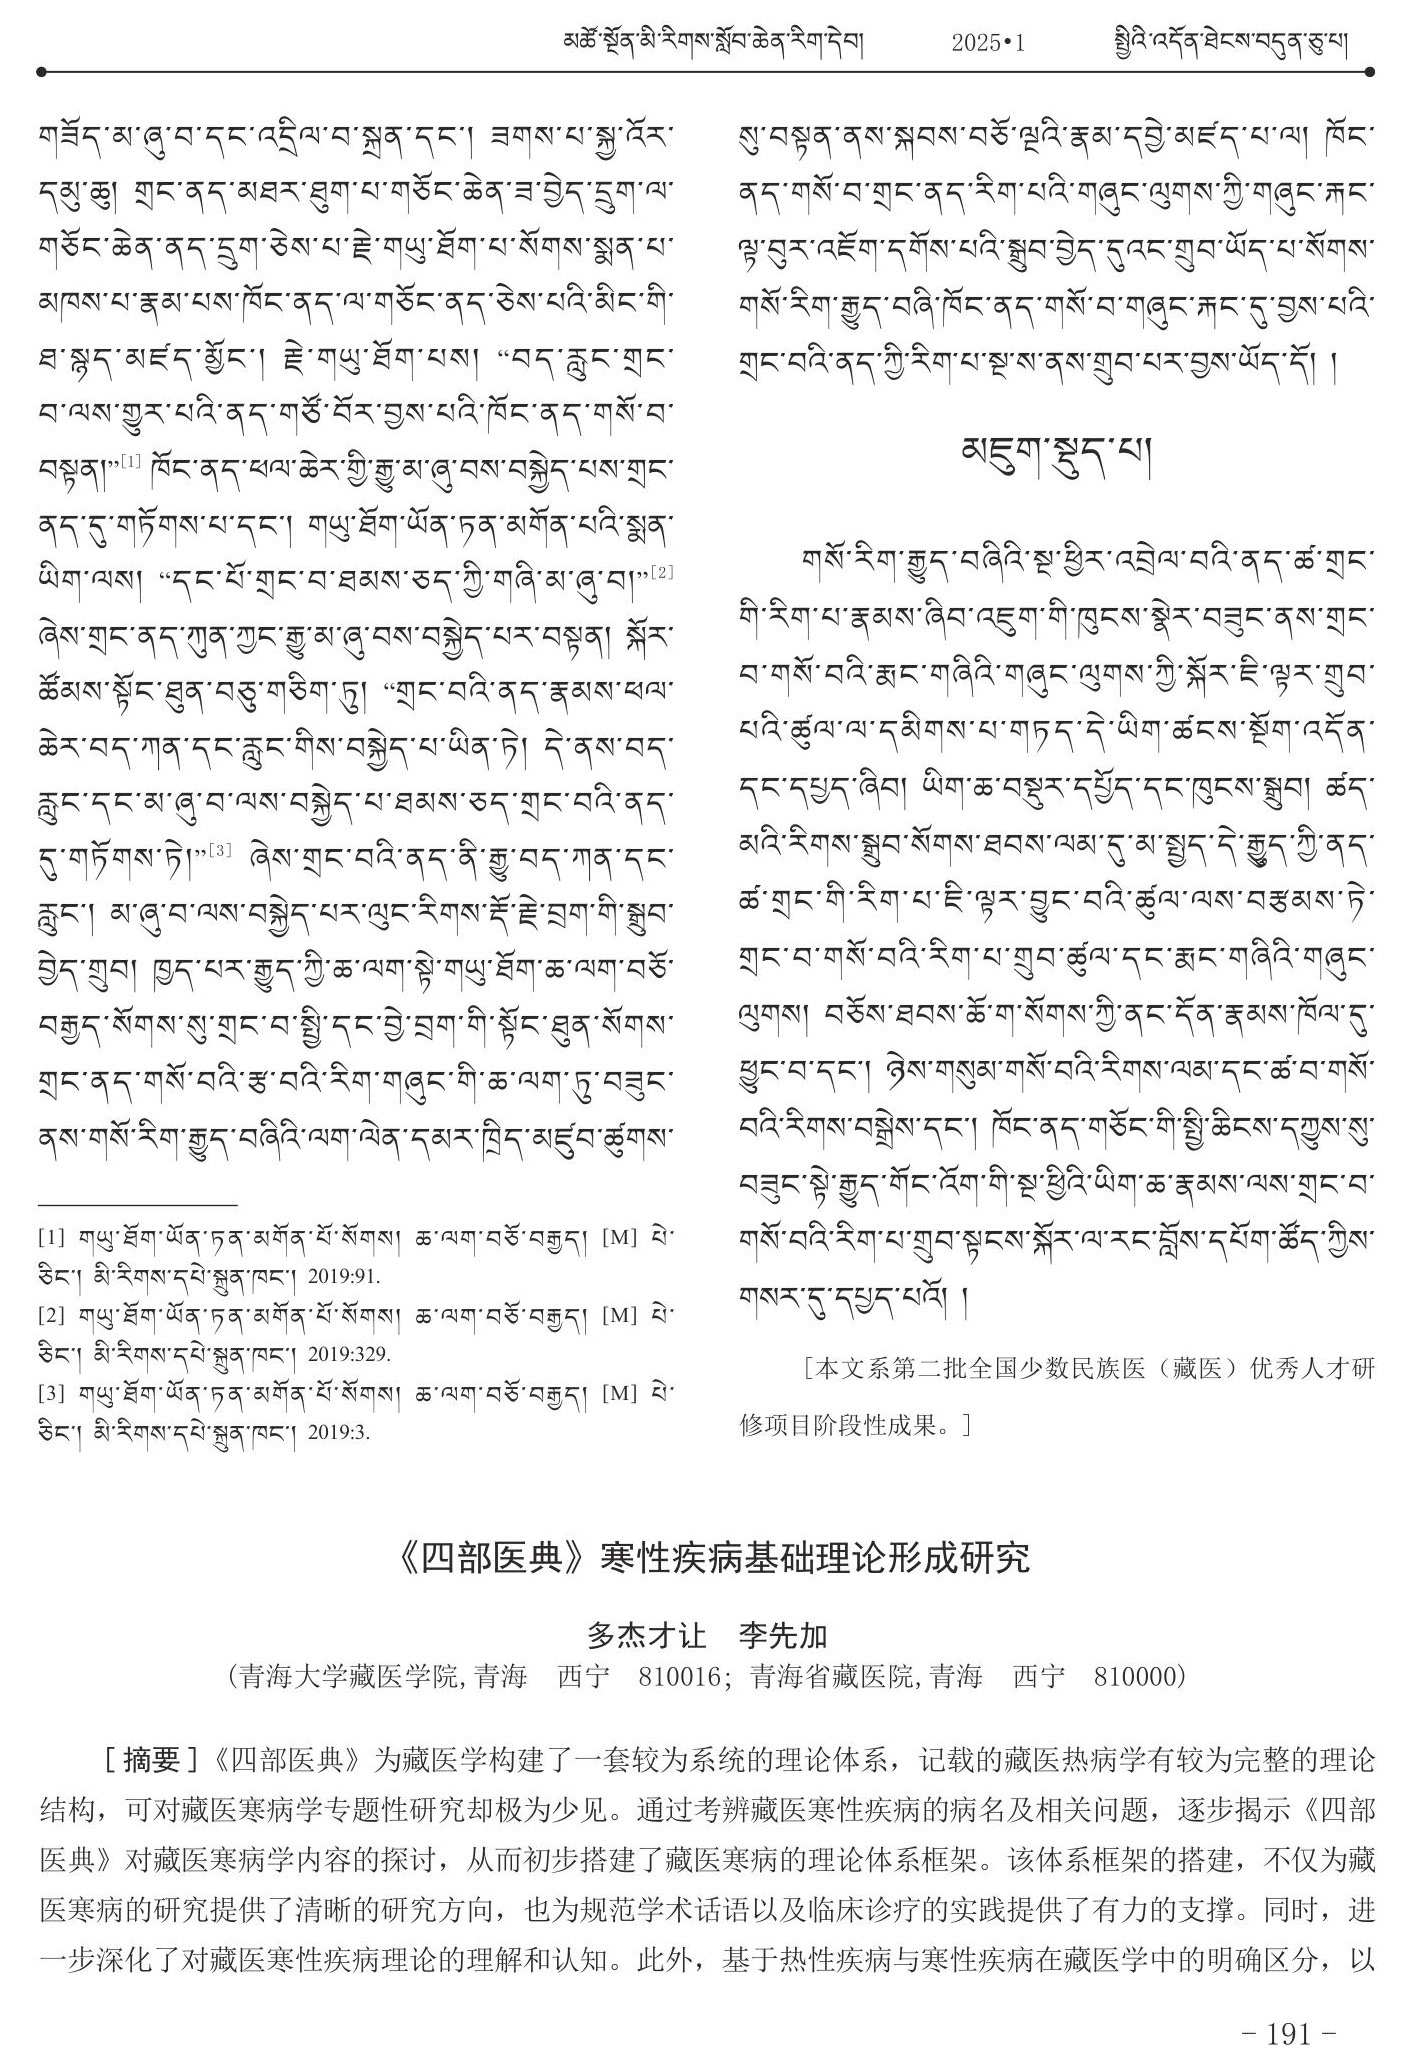 མཚོ་སྔོན་མི་རིགས་སློབ་ཆེན་རིག་དེབ། 2025•1 སྤྱིའི་འདོན་ཐེངས་བདུན་ཅུ་པ།
གཟོད་མ་ཞུ་བ་དང་འདྲིལ་བ་སྐྲན་དང་། ཟགས་པ་སྐྱ་འོར་
དམུ་ཆུ། གྲང་ནད་མཐར་ཐུག་པ་གཅོང་ཆེན་ཟ་བྱེད་དྲུག་ལ་
གཅོང་ཆེན་ནད་དྲུག་ཅེས་པ་རྗེ་གཡུ་ཐོག་པ་སོགས་སྨན་པ་
མཁས་པ་རྣམ་པས་ཁོང་ནད་ལ་གཅོང་ནད་ཅེས་པའི་མིང་གི་
ཐ་སྙད་མཛད་མྱོང་། རྗེ་གཡུ་ཐོག་པས། “བད་རླུང་གྲང་
བ་ལས་གྱུར་པའི་ནད་གཙོ་བོར་བྱས་པའི་ཁོང་ནད་གསོ་བ་
བསྟན།”[1] ཁོང་ནད་ཕལ་ཆེར་གྱི་རྒྱུ་མ་ཞུ་བས་བསྐྱེད་པས་གྲང་
ནད་དུ་གཏོགས་པ་དང་། གཡུ་ཐོག་ཡོན་ཏན་མགོན་པའི་སྨན་
ཡིག་ལས། “དང་པོ་གྲང་བ་ཐམས་ཅད་ཀྱི་གཞི་མ་ཞུ་བ།”[2]
ཞེས་གྲང་ནད་ཀུན་ཀྱང་རྒྱུ་མ་ཞུ་བས་བསྐྱེད་པར་བསྟན། སྐོར་
ཚོམས་སྟོང་ཐུན་བཅུ་གཅིག་ཏུ། “གྲང་བའི་ནད་རྣམས་ཕལ་
ཆེར་བད་ཀན་དང་རླུང་གིས་བསྐྱེད་པ་ཡིན་ཏེ། དེ་ནས་བད་
རླུང་དང་མ་ཞུ་བ་ལས་བསྐྱེད་པ་ཐམས་ཅད་གྲང་བའི་ནད་
དུ་གཏོགས་ཏེ།”[3] ཞེས་གྲང་བའི་ནད་ནི་རྒྱུ་བད་ཀན་དང་
རླུང་། མ་ཞུ་བ་ལས་བསྐྱེད་པར་ལུང་རིགས་རྡོ་རྗེ་བྲག་གི་སྒྲུབ་
བྱེད་གྲུབ། ཁྱད་པར་རྒྱུད་ཀྱི་ཆ་ལག་སྟེ་གཡུ་ཐོག་ཆ་ལག་བཅོ་
བརྒྱད་སོགས་སུ་གྲང་བ་སྤྱི་དང་བྱེ་བྲག་གི་སྟོང་ཐུན་སོགས་
གྲང་ནད་གསོ་བའི་རྩ་བའི་རིག་གཞུང་གི་ཆ་ལག་ཏུ་བཟུང་
ནས་གསོ་རིག་རྒྱུད་བཞིའི་ལག་ལེན་དམར་ཁྲིད་མཛུབ་ཚུགས་
[1] གཡུ་ཐོག་ཡོན་ཏན་མགོན་པོ་སོགས། ཆ་ལག་བཅོ་བརྒྱད། [M] པེ་
ཅིང་། མི་རིགས་དཔེ་སྐྲུན་ཁང་། 2019:91.
[2] གཡུ་ཐོག་ཡོན་ཏན་མགོན་པོ་སོགས། ཆ་ལག་བཅོ་བརྒྱད། [M] པེ་
ཅིང་། མི་རིགས་དཔེ་སྐྲུན་ཁང་། 2019:329.
[3] གཡུ་ཐོག་ཡོན་ཏན་མགོན་པོ་སོགས། ཆ་ལག་བཅོ་བརྒྱད། [M] པེ་
ཅིང་། མི་རིགས་དཔེ་སྐྲུན་ཁང་། 2019:3.
སུ་བསྟན་ནས་སྐབས་བཅོ་ལྔའི་རྣམ་དབྱེ་མཛད་པ་ལ། ཁོང་
ནད་གསོ་བ་གྲང་ནད་རིག་པའི་གཞུང་ལུགས་ཀྱི་གཞུང་རྐང་
ལྟ་བུར་འཇོག་དགོས་པའི་སྒྲུབ་བྱེད་དུའང་གྲུབ་ཡོད་པ་སོགས་
གསོ་རིག་རྒྱུད་བཞི་ཁོང་ནད་གསོ་བ་གཞུང་རྐང་དུ་བྱས་པའི་
གྲང་བའི་ནད་ཀྱི་རིག་པ་སྔ་ས་ནས་གྲུབ་པར་བྱས་ཡོད་དོ། །
མཇུག་སྡུད་པ།
གསོ་རིག་རྒྱུད་བཞིའི་སྔ་ཕྱིར་འབྲེལ་བའི་ནད་ཚ་གྲང་
གི་རིག་པ་རྣམས་ཞིབ་འཇུག་གི་ཁུངས་སྣེར་བཟུང་ནས་གྲང་
བ་གསོ་བའི་རྨང་གཞིའི་གཞུང་ལུགས་ཀྱི་སྐོར་ཇི་ལྟར་གྲུབ་
པའི་ཚུལ་ལ་དམིགས་པ་གཏད་དེ་ཡིག་ཚངས་སྔོག་འདོན་
དང་དཔྱད་ཞིབ། ཡིག་ཆ་བསྡུར་དཔྱོད་དང་ཁུངས་སྒྲུབ། ཚད་
མའི་རིགས་སྒྲུབ་སོགས་ཐབས་ལམ་དུ་མ་སྤྱད་དེ་རྒྱུད་ཀྱི་ནད་
ཚ་གྲང་གི་རིག་པ་ཇི་ལྟར་བྱུང་བའི་ཚུལ་ལས་བརྩམས་ཏེ་
གྲང་བ་གསོ་བའི་རིག་པ་གྲུབ་ཚུལ་དང་རྨང་གཞིའི་གཞུང་
ལུགས། བཅོས་ཐབས་ཆོ་ག་སོགས་ཀྱི་ནང་དོན་རྣམས་ཁོལ་དུ་
ཕྱུང་བ་དང་། ཉེས་གསུམ་གསོ་བའི་རིགས་ལམ་དང་ཚ་བ་གསོ་
བའི་རིགས་བསྒྲེས་དང་། ཁོང་ནད་གཅོང་གི་སྤྱི་ཆིངས་དཀྱུས་སུ་
བཟུང་སྟེ་རྒྱུད་གོང་འོག་གི་སྔ་ཕྱིའི་ཡིག་ཆ་རྣམས་ལས་གྲང་བ་
གསོ་བའི་རིག་པ་གྲུབ་སྟངས་སྐོར་ལ་རང་བློས་དཔོག་ཚོད་ཀྱིས་
གསར་དུ་དཔྱད་པའོ། །
[本文系第二批全国少数民族医（藏医）优秀人才研
修项目阶段性成果。]
《四部医典》寒性疾病基础理论形成研究
多杰才让 李先加
(青海大学藏医学院,青海 西宁 810016; 青海省藏医院,青海 西宁 810000)
[ 摘要 ]《四部医典》为藏医学构建了一套较为系统的理论体系，记载的藏医热病学有较为完整的理论
结构，可对藏医寒病学专题性研究却极为少见。通过考辨藏医寒性疾病的病名及相关问题，逐步揭示《四部
医典》对藏医寒病学内容的探讨，从而初步搭建了藏医寒病的理论体系框架。该体系框架的搭建，不仅为藏
医寒病的研究提供了清晰的研究方向，也为规范学术话语以及临床诊疗的实践提供了有力的支撑。同时，进
一步深化了对藏医寒性疾病理论的理解和认知。此外，基于热性疾病与寒性疾病在藏医学中的明确区分，以
- 191 -